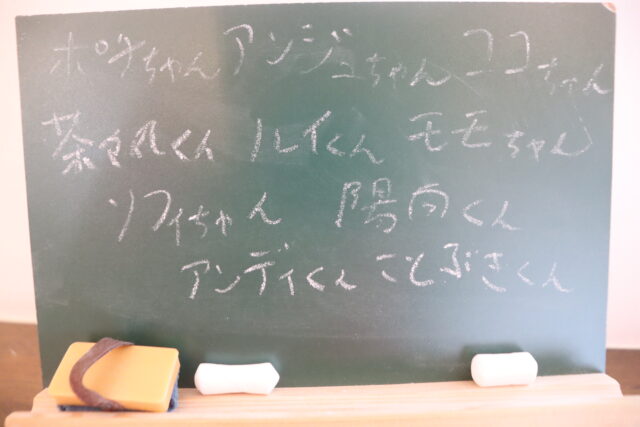 ポチちゃん アンジュちゃん ココちゃん
茶々丸くん ルイくん モモちゃん
ソフィちゃん 陽向くん
アンディくん ことぶきくん